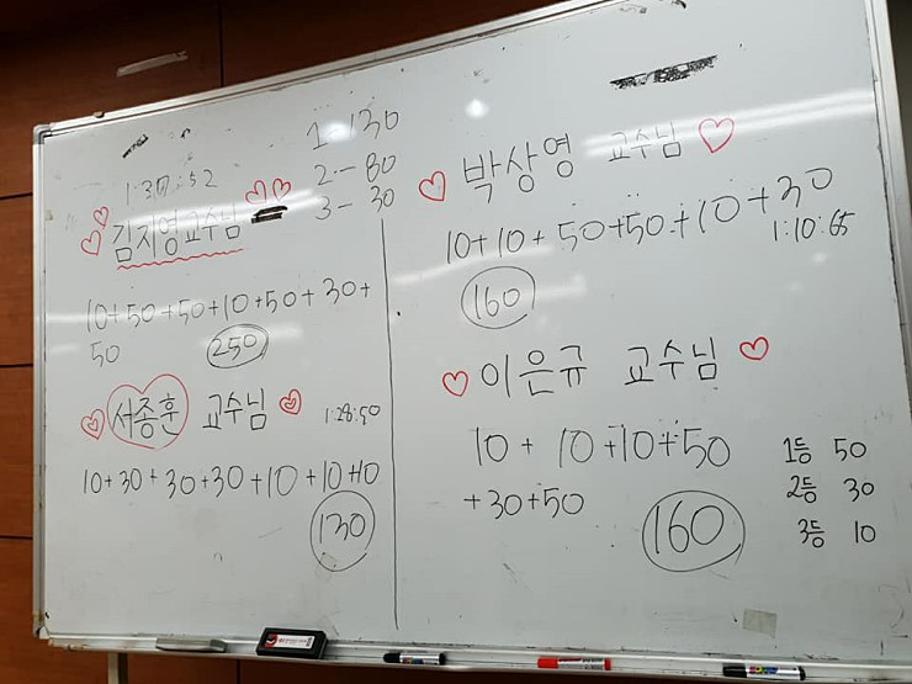 1:37:52
김지영교수님
10+50+50+10+50+30+
50
250
1-130
2-80
3-30
서종훈 교수님
1:28:50
10+30+30+30+10+10+10
130
박상영 교수님
10+10+50+50+10+30
1:10:65
160
이은규 교수님
10+10+10+50
+30+50
160
1등 50
2등 30
3등 10